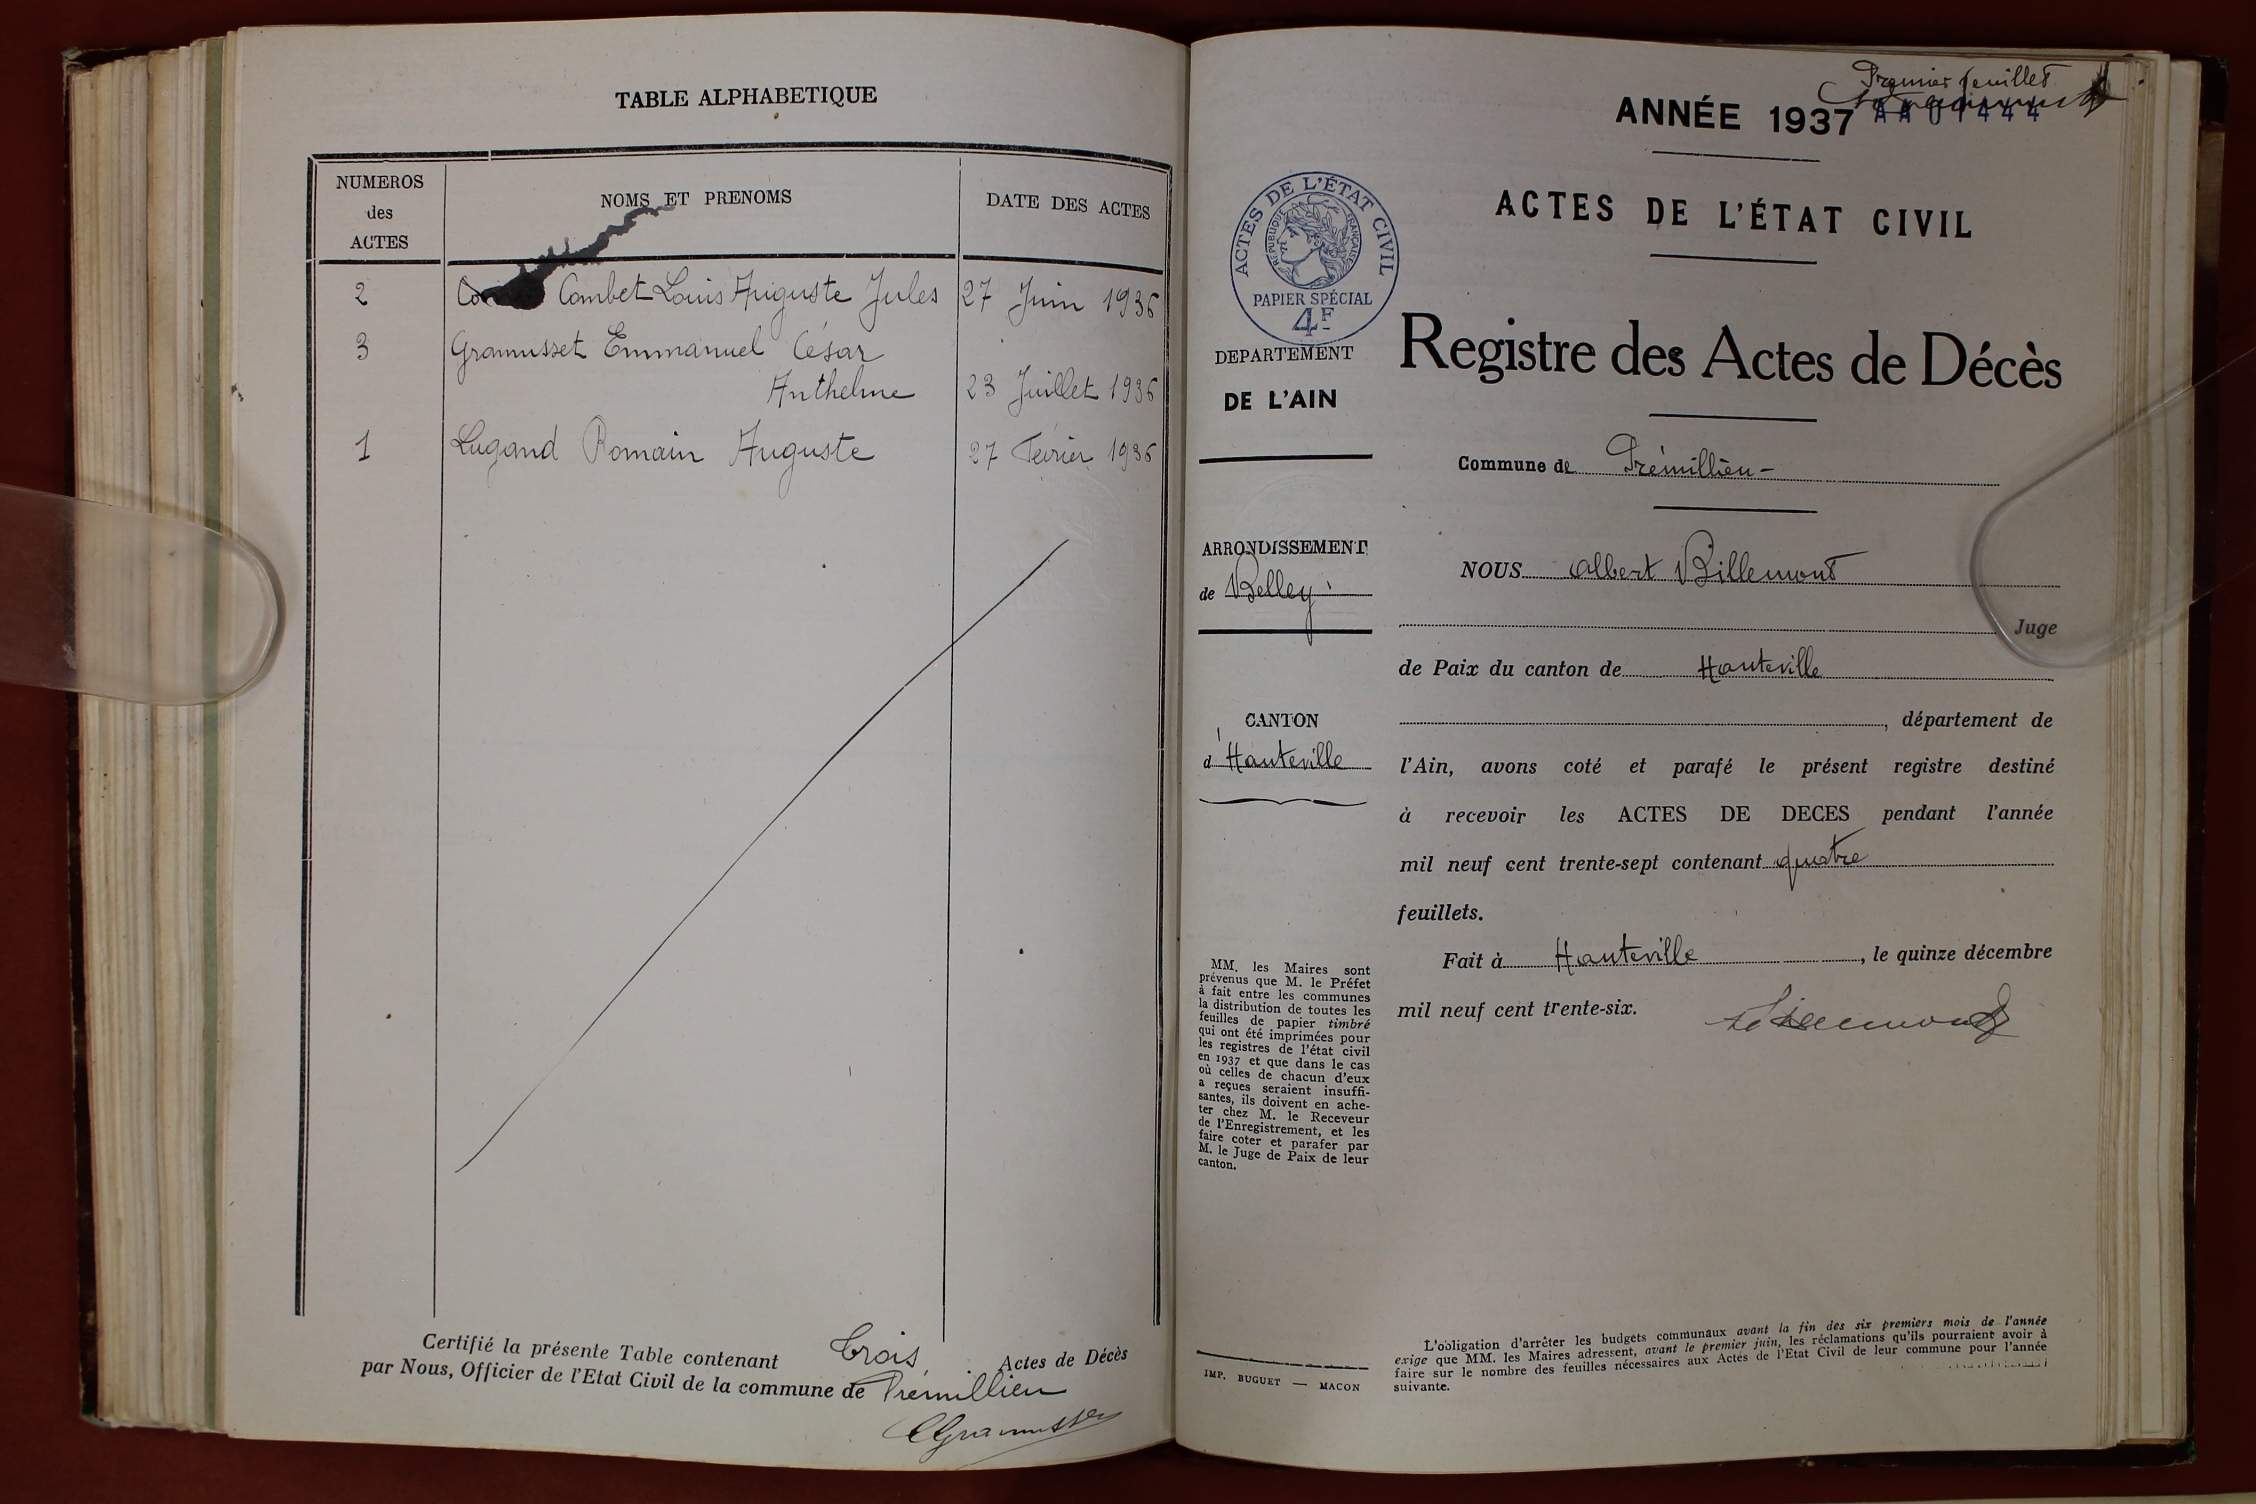 TABLE ALPHABETIQUE
NUMEROS
des
ACTES
NOMS ET PRENOMS
DATE DES ACTES
2 Combet Louis Auguste Jules 27 Juin 1936
3 Gramusset Emmanuel César
Anthelme 23 Juillet 1936
1 Lugand Romain Auguste 27 Février 1936
Certifié la présente Table contenant trois Actes de Décès
par Nous, Officier de l'Etat Civil de la commune de Prémillieu
Gramusset
Premier feuillet
ANNÉE 1937
ACTES DE L'ÉTAT CIVIL
ACTES DE L'ÉTAT CIVIL
RÉPUBLIQUE FRANÇAISE
PAPIER SPÉCIAL
4F
DEPARTEMENT
DE L'AIN
Registre des Actes de Décès
Commune de Prémillieu
ARRONDISSEMENT
de Belley
CANTON
d'Hauteville
NOUS Albert Billemont
Juge
de Paix du canton de Hauteville
, département de
l'Ain, avons coté et parafé le présent registre destiné
à recevoir les ACTES DE DECES pendant l'année
mil neuf cent trente-sept contenant quatre
feuillets.
Fait à Hauteville, le quinze décembre
mil neuf cent trente-six.
MM. les Maires sont
prévenus que M. le Préfet
à fait entre les communes
la distribution de toutes les
feuilles de papier timbré
qui ont été imprimées pour
les registres de l'état civil
en 1937 et que dans le cas
où celles de chacun d'eux
a reçues seraient insuffi-
santes, ils doivent en ache-
ter chez M. le Receveur
de l'Enregistrement, et les
faire coter et parafer par
M. le Juge de Paix de leur
canton.
IMP. BUGUET — MACON
L'obligation d'arrêter les budgets communaux avant la fin des six premiers mois de l'année
exige que MM. les Maires adressent, avant le premier juin, les réclamations qu'ils pourraient avoir à
faire sur le nombre des feuilles nécessaires aux Actes de l'Etat Civil de leur commune pour l'année
suivante.